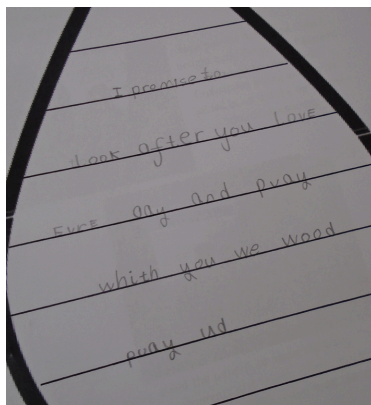 I promise to
Look after you Love
Evre day and pray
whith you we wood
pray ud